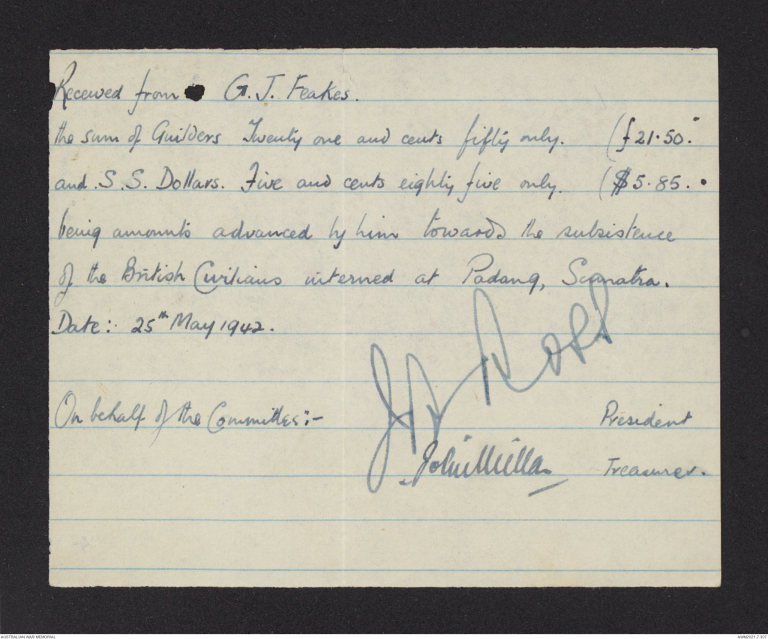 Received from G. J. Feakes.
the sum of Guilders Twenty one and cents fifty only. (ƒ21.50.
and S.S. Dollars. Five and cents eighty five only. ($5.85.
being amounts advanced by him towards the subsistence
of the British Civilians interned at Padang, Sumatra.
Date: 25th May 1942.
On behalf of the Committee:- President
John Treasurer.
AUSTRALIAN WAR MEMORIAL